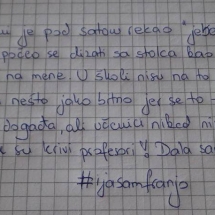 je pod satom rekao "jebo
počeo se dizati sa stolca kao
na mene. U školi nisu na to
nešto jako bitno jer se to
događa, ali učenici nikad ni
su krivi profesori"! Dala sa
#ijasamfranjo